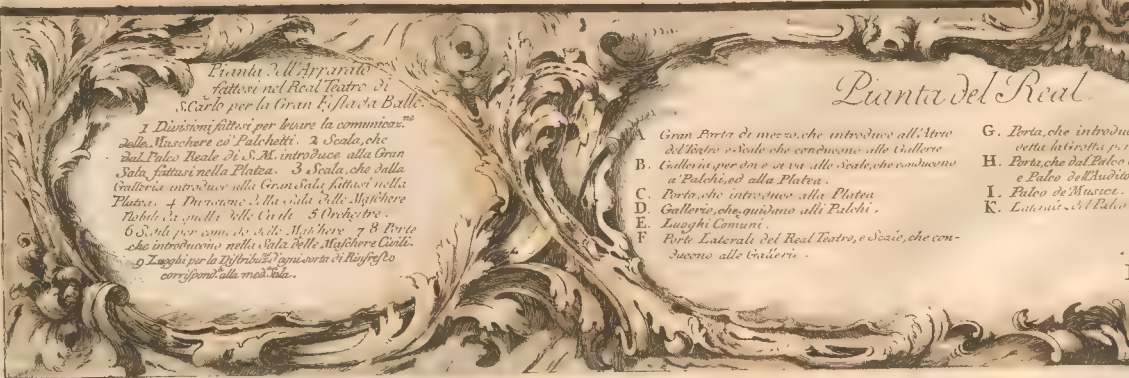 Pianta dell'Apparato
fattosi nel Real Teatro di
S. Carlo per la Gran Festa da Ballo
1 Divisioni fattesi per levare la comunicaz.ne
delle Maschere co' Palchetti. 2 Scala, che
dal Palco Reale di S. M. introduce alla Gran
Sala fattasi nella Platea. 3 Scala, che dalla
Galleria introduce alla Gran Sala fattasi nella
Platea. 4 Divisione della Sala delle Maschere
Nobili da quella delle Civili 5 Orchestre.
6 Sedili per comodo delle Maschere 7 8 Porte
che introducono nella Sala delle Maschere Civili.
9 Luoghi per la Distribuz. d'ogni sorta di Rinfresco
corrispond. alla med. Sala.
Pianta del Real
A Gran Porta di mezzo, che introduce all'Atrio
del Teatro e Scale che conducono alle Gallerie
B. Galleria per ove si va alle Scale, che conducono
a' Palchi, ed alla Platea.
C. Porta, che introduce alla Platea
D. Gallerie, che guidano alli Palchi.
E. Luoghi Comuni.
F Porte Laterali del Real Teatro, e Scale, che con-
ducono alle Gallerie.
G. Porta, che introdu
detta la Grotta per
H. Porta, che dal Palco
e Palco dell'Audito
I. Palco de' Musici.
K. Laterali del Palco